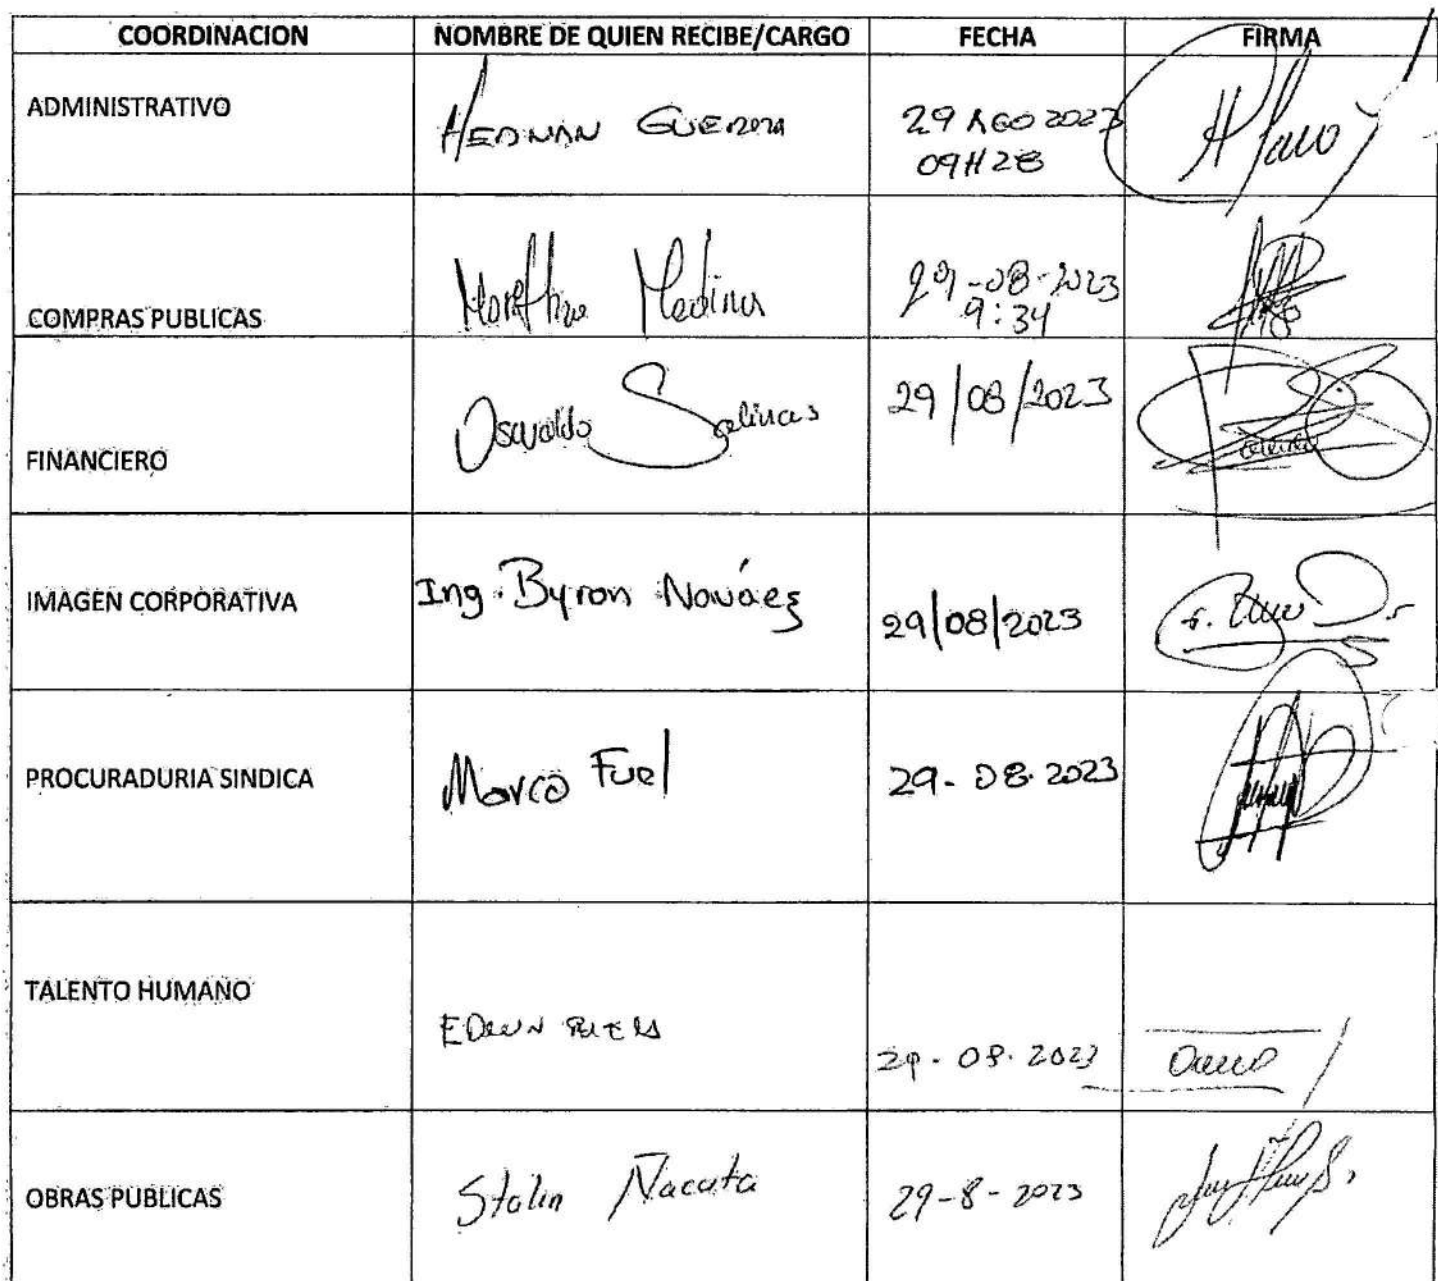 COORDINACION NOMBRE DE QUIEN RECIBE/CARGO FECHA FIRMA
ADMINISTRATIVO HERNAN GUERRA 29 AGO 2023
09H28
COMPRAS PUBLICAS Medina 29-08-2023
9:34
FINANCIERO Osvaldo Salinas 29/08/2023
IMAGEN CORPORATIVA Ing. Byron Narváez 29/08/2023
PROCURADURIA SINDICA Marco Fuel 29-08-2023
TALENTO HUMANO EDWIN 29-08-2023
OBRAS PUBLICAS Stalin Ñacata 29-8-2023